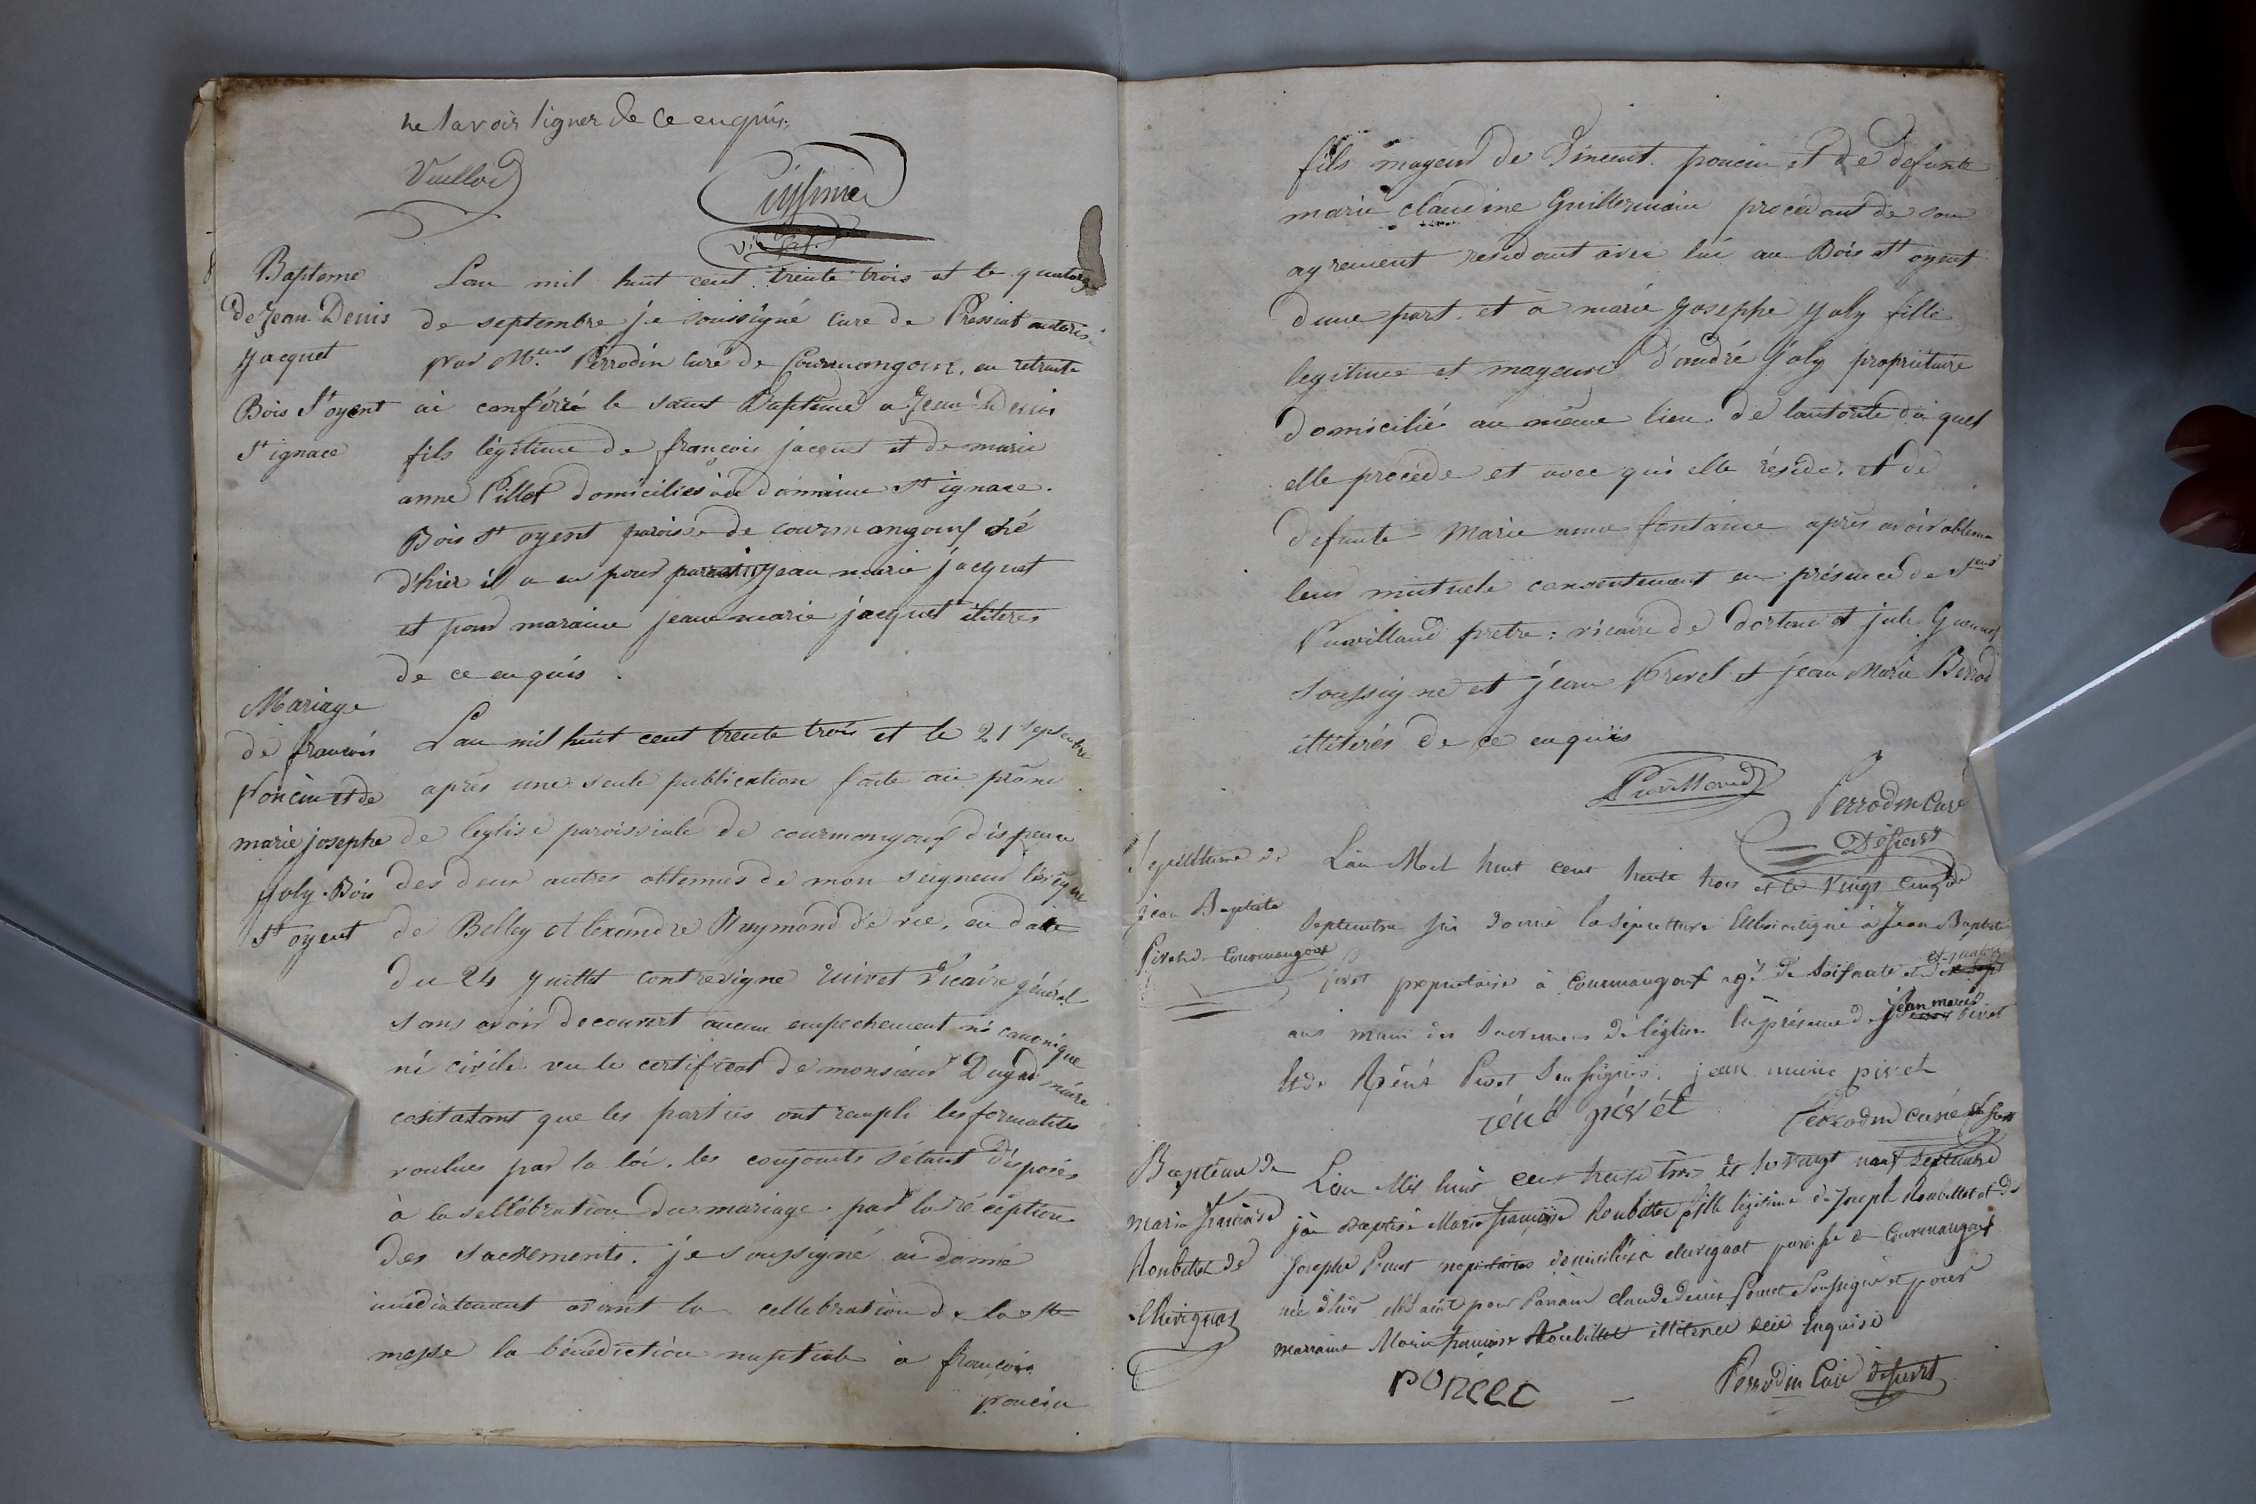 ne savoir signer de ce enquis.
Vuillod
Cuissinier
Bapteme
de Jean Denis
Jacquet
Bois St oyent
St ignace
Lan mil huit cent trente trois et le quatorze
de septembre je soussigné curé de Pressiat autorisé
par Mr. Perrodin curé de Courmangoux, en retraite
ai conférré le saint Bapteme a Jean Denis
fils légitime de françois jacquet et de marie
anne Pillot domiciliés au domaine St ignace.
Bois St oyent paroisse de courmangoux né
d'hier il a eu pour parrain jean marie jacquet
et pour maraine jeane marie jacquet iliterés
de ce enquis.
Mariage
de françois
Poncin et de
marie josephe
Joly. Bois
St oyent
Lan mil huit cent trente trois et le 21 septembre
après une seule publication faite au prône
de leglise paroissiale de courmangoux dispence
des deux autres obtenues de mon seigneur lévêque
de Belley Alexandre Raymond devie, en date
du 24 juillet contresigne Ruivet Vicaire général
sans avoir decouvert aucun empechement ni canonique
ni civile vu le certificat de monsieur Dugad maire
costatant que les parties ont rempli les formalites
voulues par la loi. les conjoints s'étant disposés
à la sellébration du mariage par la réception
des sacrements. je soussigné ai donné
imédiatement avant la cellebration de la ste
messe la bénédiction nuptiale à françois
poncin
fils mageur de Vincent poncin et de defunte
marie claudine Guillermain procédant de son
agrement residant avec lui au Bois St oyent
dune part. et à marie Josephe Joly fille
legitime et mageure d'andré Joly propriétaire
domicilié au même lieu. de lautorité du quel
elle procède et avec qui elle réside. et de
defunte Marie anne fontaine après avoir obtenu
leur mutuele consentement en présence de
Puvilland pretre: vicaire de dortan et
soussigné et jean Prevel et jean Marie Berrod
illiterés de ce enquis
Puvilland
Perrodin Curé
Désservt
Sepulthure de
jean Baptiste
Pivet de Courmangoux
Lan Mil huit cent trente trois et le vingt cinq de
septembre jai donné la sépulture Ecclésiastique à Jean Baptiste
pivet propriétaire à Courmangoux agé de soixante et dix sept
et quatorze
ans muni des sacremens de l'église en présence de jean marie pivet
et de Réné Pivet soussignés. jean marie pivet
réné pivét
Perrodin curé desservt
Baptême de
Marie françoise
Roubellet de
Chevignat
Lan Mil huit cent trente trois et le vingt neuf septembre
jai Baptisé Marie françoise Roubellet fille légitime de Joseph Roubellet et de
Josephe Poncet domiciliés à chevignat paroisse de Courmangoux
née d'hier Elle a eüe pour Parrain claude denis Poncet Soussigné et pour
marraine Marie françoise Roubellet illiterée de ce Enquise
PONCEC
Perrodin Curé désservt